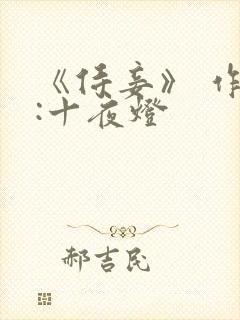 《侍妾》 作
:十夜燈
郝吉民